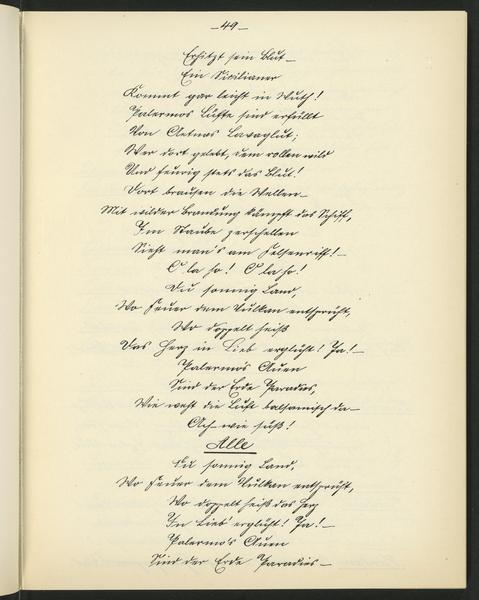 — 49 —
Erhitzt sein Blut —
Ein Sicilianer
Kommt gar leicht in Wuth!
Palermos Lüfte sind erfüllt
Von Aetnas Lavaglut;
Wer dort gelebt, dem rollen wild
Und feurig stets das Blut!
Dort brausen die Wellen —
Mit wilder Brandung kämpft das Schiff,
Im Staube zerschellen
Sieht man's am Felsenriff! —
O la ho! O la ho!
Du sonnig Land,
Wo Feuer dem Vulkan entsprüht,
Wo doppelt heiß
Das Herz in Lieb erglüht! Ja! —
Palermo's Auen
Sind der Erde Paradies,
Wie weht die Luft balsamisch da —
Ach wie süß!
Alle
Du sonnig Land,
Wo Feuer dem Vulkan entsprüht,
Wo doppelt heiß das Herz
In Lieb' erglüht! Ja! —
Palermo's Auen
Sind der Erde Paradies —